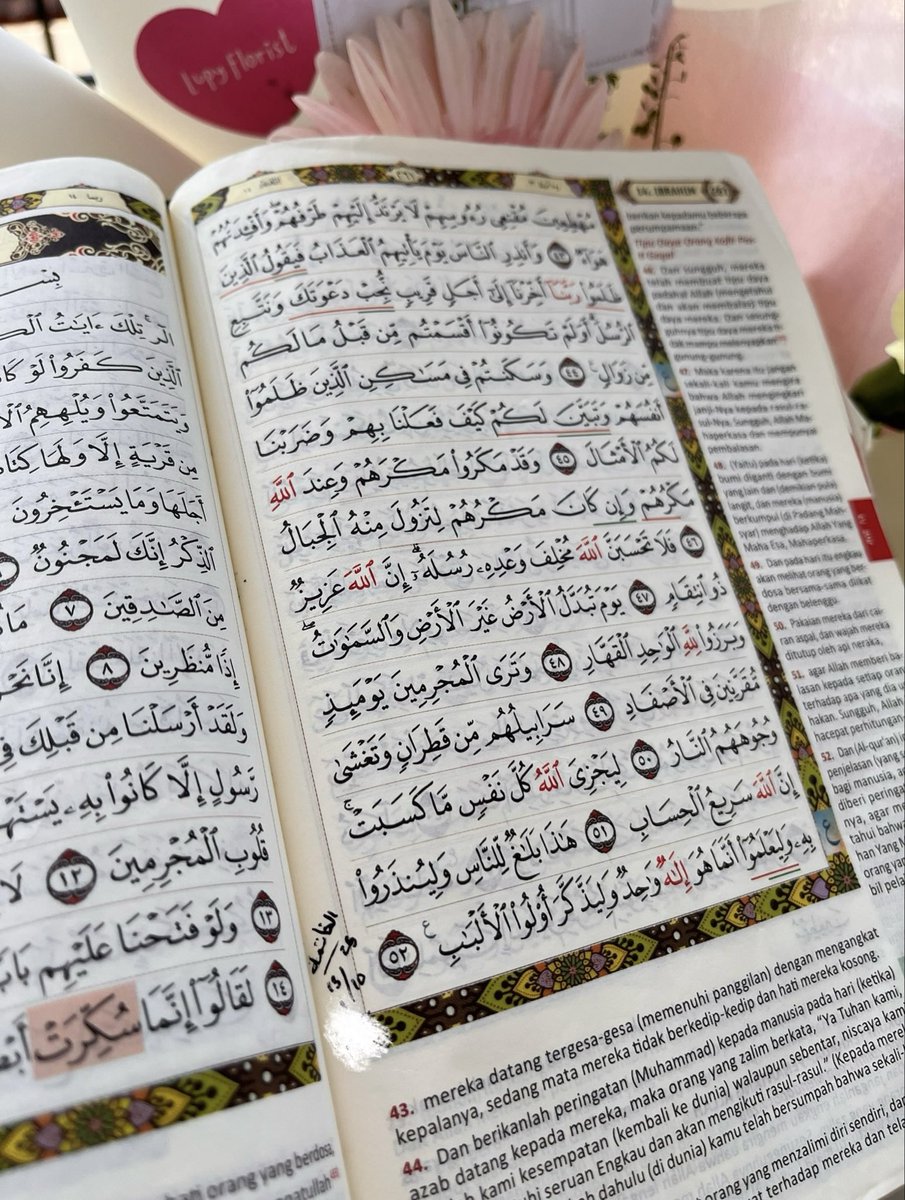 lupy florist
مُهْطِعِينَ مُقْنِعِى رُءُوسِهِمْ لَا يَرْتَدُّ إِلَيْهِمْ طَرْفُهُمْ ۖ وَأَفْـِٔدَتُهُمْ
هَوَآءٌ ٤٣ وَأَنذِرِ ٱلنَّاسَ يَوْمَ يَأْتِيهِمُ ٱلْعَذَابُ فَيَقُولُ ٱلَّذِينَ
ظَلَمُوا۟ رَبَّنَآ أَخِّرْنَآ إِلَىٰٓ أَجَلٍ قَرِيبٍ نُّجِبْ دَعْوَتَكَ وَنَتَّبِعِ
ٱلرُّسُلَ ۗ أَوَلَمْ تَكُونُوٓا۟ أَقْسَمْتُم مِّن قَبْلُ مَا لَكُم
مِّن زَوَالٍ ٤٤ وَسَكَنتُمْ فِى مَسَـٰكِنِ ٱلَّذِينَ ظَلَمُوٓا۟
أَنفُسَهُمْ وَتَبَيَّنَ لَكُمْ كَيْفَ فَعَلْنَا بِهِمْ وَضَرَبْنَا
لَكُمُ ٱلْأَمْثَالَ ٤٥ وَقَدْ مَكَرُوا۟ مَكْرَهُمْ وَعِندَ ٱللَّهِ
مَكْرُهُمْ وَإِن كَانَ مَكْرُهُمْ لِتَزُولَ مِنْهُ ٱلْجِبَالُ
٤٦ فَلَا تَحْسَبَنَّ ٱللَّهَ مُخْلِفَ وَعْدِهِۦ رُسُلَهُۥٓ ۗ إِنَّ ٱللَّهَ عَزِيزٌ
ذُو ٱنتِقَامٍ ٤٧ يَوْمَ تُبَدَّلُ ٱلْأَرْضُ غَيْرَ ٱلْأَرْضِ وَٱلسَّمَـٰوَٰتُ ۖ
وَبَرَزُوا۟ لِلَّهِ ٱلْوَٰحِدِ ٱلْقَهَّارِ ٤٨ وَتَرَى ٱلْمُجْرِمِينَ يَوْمَئِذٍ
مُّقَرَّنِينَ فِى ٱلْأَصْفَادِ ٤٩ سَرَابِيلُهُم مِّن قَطِرَانٍ وَتَغْشَىٰ
وُجُوهَهُمُ ٱلنَّارُ ٥٠ لِيَجْزِىَ ٱللَّهُ كُلَّ نَفْسٍ مَّا كَسَبَتْ ۚ
إِنَّ ٱللَّهَ سَرِيعُ ٱلْحِسَابِ ٥١ هَـٰذَا بَلَـٰغٌ لِّلنَّاسِ وَلِيُنذَرُوا۟
بِهِۦ وَلِيَعْلَمُوٓا۟ أَنَّمَا هُوَ إِلَـٰهٌ وَٰحِدٌ وَلِيَذَّكَّرَ أُو۟لُوا۟ ٱلْأَلْبَـٰبِ ٥٢
43. mereka datang tergesa-gesa (memenuhi panggilan) dengan mengangkat
kepalanya, sedang mata mereka tidak berkedip-kedip dan hati mereka kosong.
44. Dan berikanlah peringatan (Muhammad) kepada manusia pada hari (ketika)
azab datang kepada mereka, maka orang yang zalim berkata, "Ya Tuhan kami,
kami kesempatan (kembali ke dunia) walaupun sebentar, niscaya kami
seruan Engkau dan akan mengikuti rasul-rasul." (Kepada
dahulu (di dunia) kamu telah bersumpah bahwa sekali-
orang yang menzalimi diri sendiri,
terhadap mereka dan
14. IBRAHIM 261
berikan kepadamu beberapa
perumpamaan."
Tipu Daya Orang Kafir
46. Dan sungguh, mereka
telah membuat tipu daya
padahal Allah (mengetahui
dan akan membalas) tipu
daya mereka. Dan
tipu daya mereka
tak mampu melenyapkan
gunung-gunung.
47. Maka karena itu jangan
sekali-kali kamu mengira
bahwa Allah mengingkari
janji-Nya kepada rasul-
Nya. Sungguh, Allah
perkasa dan mempunyai
pembalasan.
48. (Yaitu) pada hari (ketika)
bumi diganti dengan bumi
yang lain dan (demikian pula)
langit, dan mereka (manusia)
berkumpul (di Padang Mah-
syar) menghadap Allah Yang
Maha Esa, Mahaperkasa.
49. Dan pada hari itu engkau
akan melihat orang yang ber-
dosa bersama-sama diikat
dengan belenggu.
50. Pakaian mereka dari cai-
ran aspal, dan wajah mereka
ditutup oleh api neraka,
51. agar Allah memberi ba-
lasan kepada setiap
terhadap apa yang dia
hakan. Sungguh, Allah
hacepat perhitungan
52. Dan (Al-qur'an)
penjelasan (yang
bagi manusia,
diberi peringa
nya, agar me
tahui bahwa
han Yang M
orang yan
bil pela
الٓر ۚ تِلْكَ ءَايَـٰتُ
ٱلَّذِينَ كَفَرُوا۟ لَوْ
وَيَتَمَتَّعُوا۟ وَيُلْهِهِمُ
مِن قَرْيَةٍ إِلَّا وَلَهَا
أَجَلَهَا وَمَا يَسْتَـْٔخِرُونَ
ٱلذِّكْرُ إِنَّكَ لَمَجْنُونٌ
مِنَ ٱلصَّـٰدِقِينَ ٧
إِذًا مُّنظَرِينَ ٨ إِنَّا
وَلَقَدْ أَرْسَلْنَا مِن قَبْلِكَ فِى
رَّسُولٍ إِلَّا كَانُوا۟ بِهِۦ
قُلُوبِ ٱلْمُجْرِمِينَ ١٢ لَا
١٣ وَلَوْ فَتَحْنَا عَلَيْهِم
١٤ لَقَالُوٓا۟ إِنَّمَا سُكِّرَتْ
orang yang berdosa,